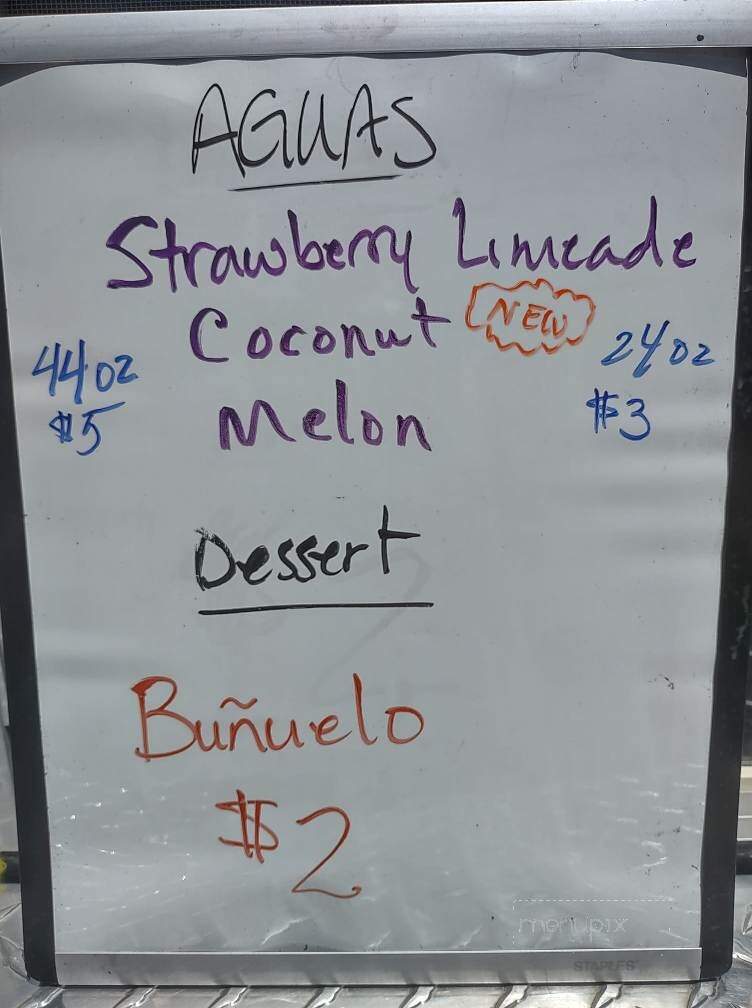 AGUAS
Strawberry Limeade
Coconut NEW
Melon
44oz
$5
24oz
$3
Dessert
Buñuelo
$2
menupix
STAPLES